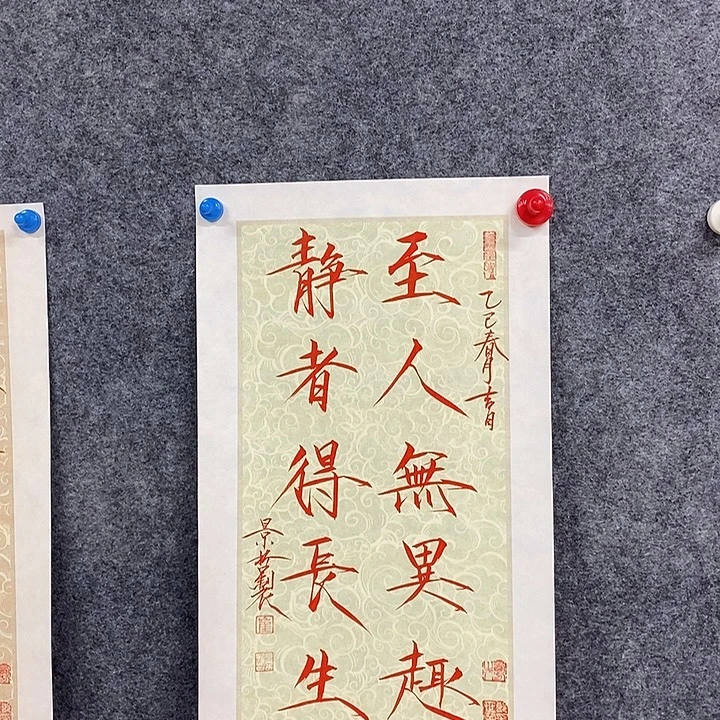 乙巳春月吉日
至人無異趣
靜者得長生
景
製